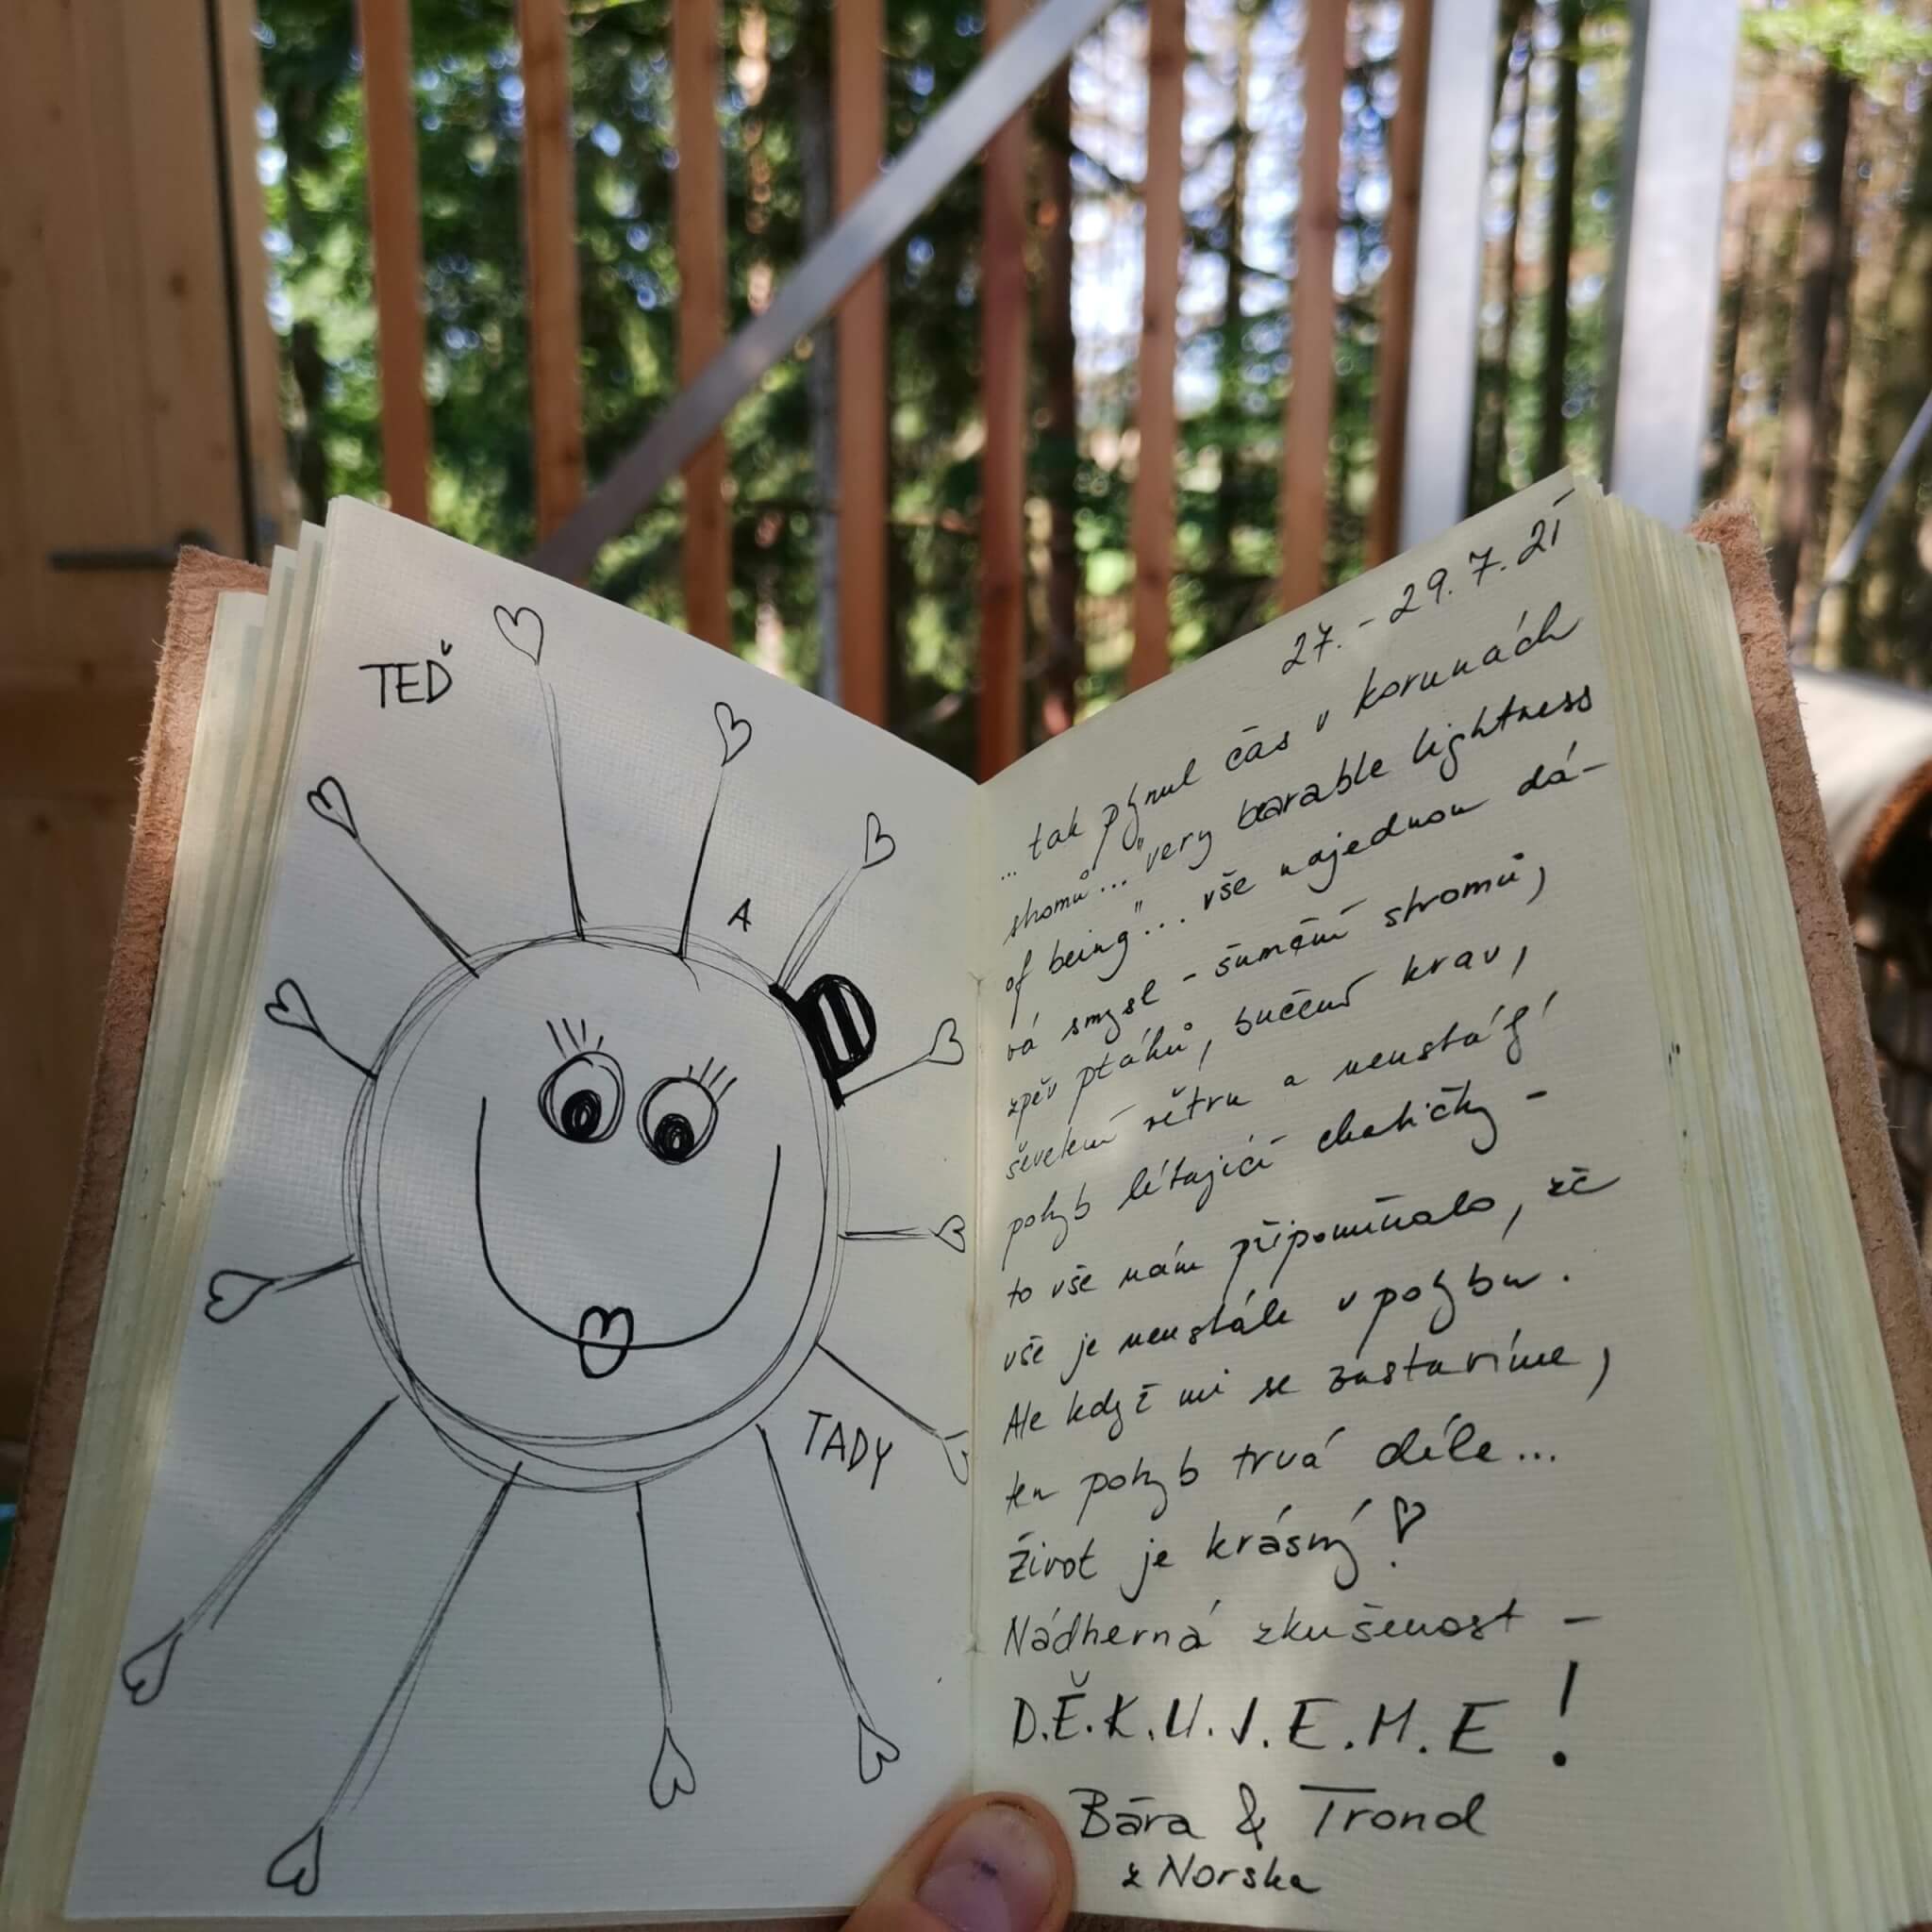 TEĎ
A
TADY
27. - 29. 7. 21
... tak plynul čas v korunách
stromů... "very bearable lightness
of being"... vše najednou dá-
vá smysl - šumění stromů,
zpěv ptáků, bučení krav,
ševelení větru a neustálý
pohyb létající chatičky -
to vše nám připomínalo, že
vše je neustále v pohybu.
Ale když mi se zastavíme,
ten pohyb trvá déle...
Život je krásný!
Nádherná zkušenost -
D.Ě.K.U.J.E.M.E!
Bára & Trond
z Norska